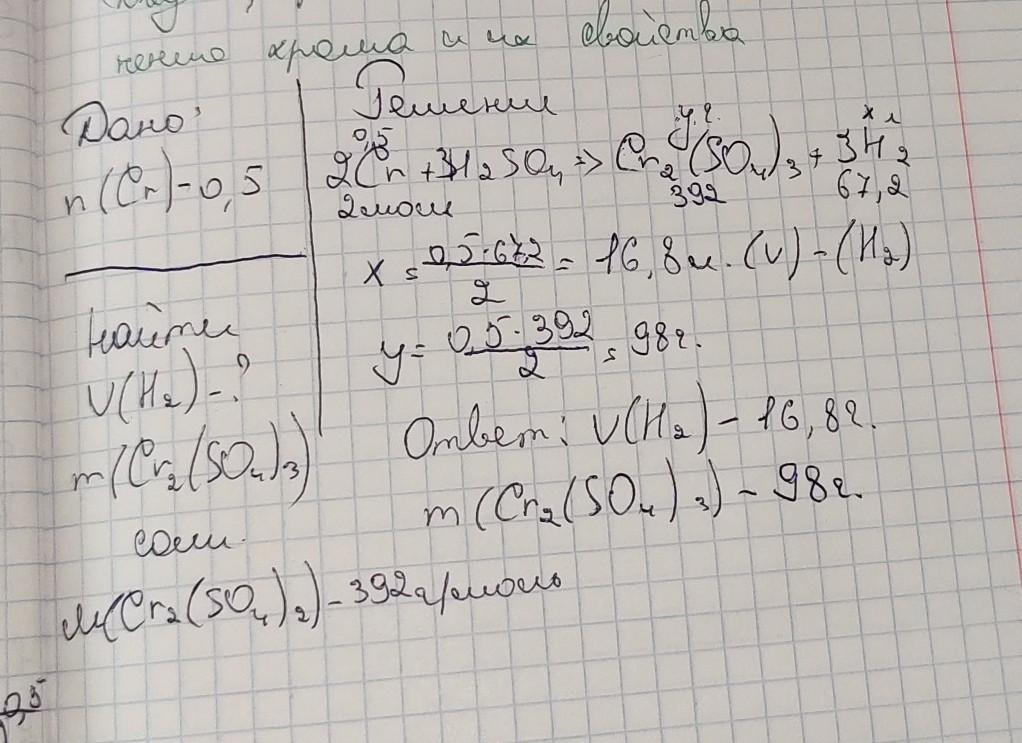 нению хрома и их свойства
Дано:
n(Cr)-0,5
Найти
V(H2)-?
m(Cr2(SO4)3)
соли.
M(Cr2(SO4)2)-392г/моль
Решение
0,5 у.г. х л
2Cr + 3H2SO4 => Cr2(SO4)3 + 3H2
2моль 392 67,2
x = 0,5·67,2/2 = 16,8л. (V) - (H2)
y = 0,5·392/2 = 98г.
Ответ: V(H2) - 16,8г.
m(Cr2(SO4)3) - 98г.